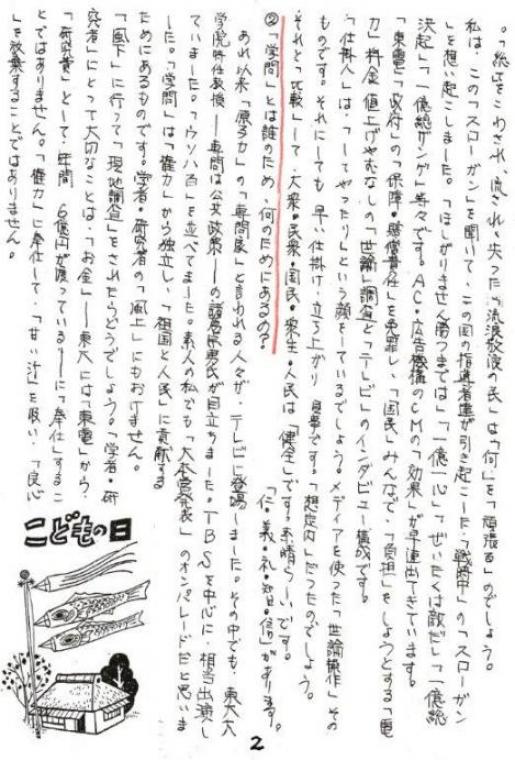 。「総てをこわされ、流され、失った」「流浪放浪の民」は「何」を「頑張る」のでしょう。
私は、この「スローガン」を聞いて、この国の指導者達が引き起こした「戦時中」の「スローガン
」を想い起こしました。「ほしがりません勝つまでは」「一億一心」「ぜいたくは敵だ」「一億総
決起」「一億総ザンゲ」等々です。AC・広告機構のCMの「効果」が早速出てきています。
「東電」「政府」の「保障・賠償責任」を免罪し、「国民」みんなで、「負担」をしようとする「電
力」料金値上げやむなしの「世論」調査と「テレビ」のインタビュー構成です。
「仕掛人」は、「してやったり」という顔をしているでしょう。メディアを使った「世論操作」その
ものです。それにしても早い仕掛け・立ち上がり 見事です。「想定内」だったのでしょう。
それと「比較」して、大衆・民衆・国民・衆生・人民は「健全」です。素晴らしいです。
「仁・義・礼・智・信」があります。
②「学問」とは誰のため、何のためにあるの?
あれ以来「原子力」の「専門家」と言われる人々が、テレビに登場しました。その中でも、東大大
学院特任教授──専門は公共政策──の諸葛宗男氏が目立ちました。TBSを中心に、相当出演し
ていました。「ウソ八百」を並べてました。素人の私でも「大本営発表」のオンパレードだと思いま
した。「学問」は「権力」から独立し、「祖国と人民」に貢献する
ためにあるものです。学者・研究者の「風上」にもおけません。
「風下」に行って「現地調査」をされたらどうでしょう。「学者・研
究者」にとって大切なことは、「お金」──東大には「東電」から、
「研究費」として、年間 6億円が渡っている──に「奉仕」するこ
とではありません。「権力」に奉仕して、「甘い汁」を吸い、「良心
」を放棄することではありません。
こどもの日
2